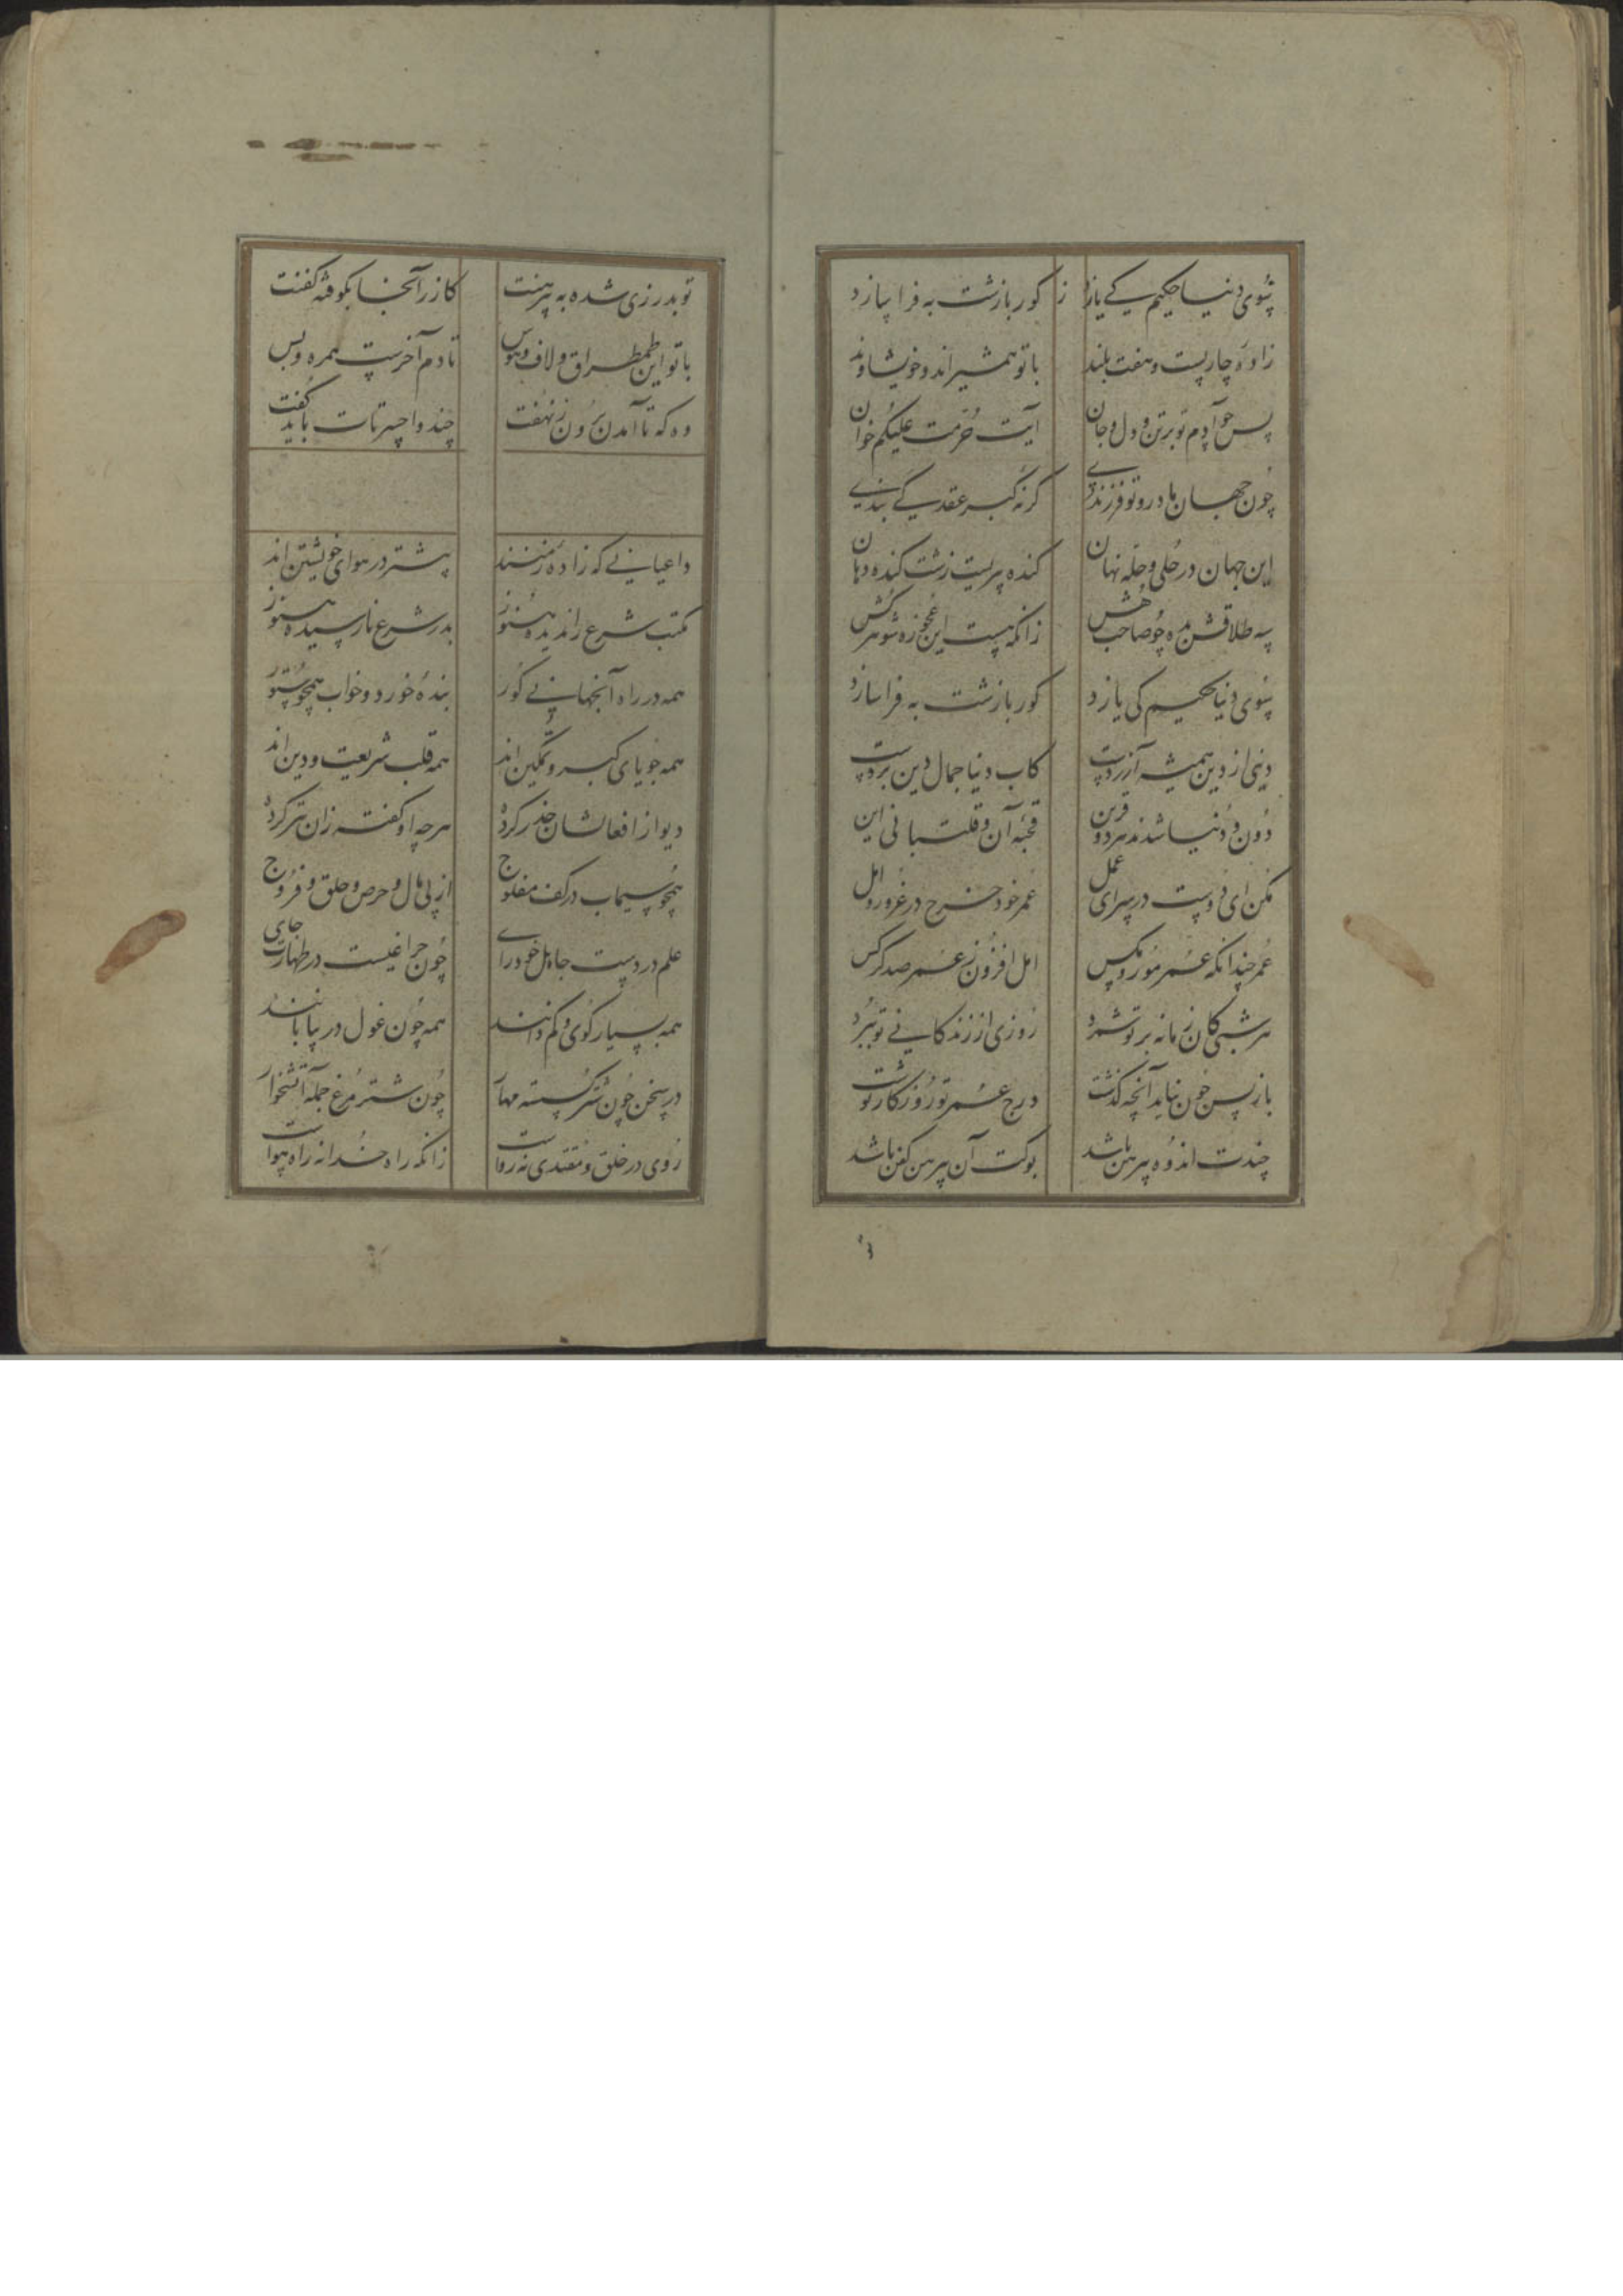 بسوی دنیا حکیم کے یازد ز کور با زشت به فرا سازد
زاده چار پست و هفت بلند با تو همشیراند و خویشاوند
پس حوا آدم تو بر تن و دل و جان آیت حُرّمت علیکُم خوان
چون جهان مادر و تو فرزندی گرنه گبر عقد کے بندی
این جهان در حُلی و حله نهان گنده پیریست زشت گنده دهان
سه طلاقش ده چو صاحب هُش زانکه هست این عجوزه شوهر کُش
بسوی دنیا حکیم کی یازد کور با زشت به فرا سازد
دینی از دین همیشه آزردست کاب دنیا جمال دین بردست
دون و دنیا شدند هر دو قرین قحبه آن و قلتبانی این
مکن ای دوست در سرای عمل عمر خود خرج در غرور و امل
عمر چندانکه عمر مور و مگس امل افزون ز عمر صد کرکس
هر شبی کان زمانه بر تو شمرد روزی از زندکانی تو ببرد
باز پس چون نیاید آنچه گذشت درج عمر تو روزکار نوشت
چندت اندوه پیرهن باشد بوکت آن پیرهن کفن باشد
تو بدرزی شده به پیرهنت کازر آنجا بکوفته کفنت
با تو این طمطراق و لاف و هوس تا دم آخرست همره و بس
وه که تا آمدن برون ز نهفت چند واحسرتات باید گفت
داعیانی که زاده زمنند بیشتر در هوای خویشتن‌اند
مکتب شرع را ندیده هنوز بدر شرع نارسیده هنوز
همه در راه آنجهانی کور بنده خورد و خواب همچو ستور
همه جویای کبر و تمکین‌اند همه قلب شریعت و دین‌اند
دیو از افعالشان حذر کرده هرچه او گفته زان بتر کرده
همچو سیماب در کف مفلوج از پی مال و حرص و حلق و فروج
علم در دست جاهل خودرای چون چراغیست در طهارت جای
همه بسیار گوی و کم دانند همه چون غول در بیابانند
در سخن چون شتر گسسته مهار چون شتر مرغ جمله آتشخوار
روی در خلق و مقتدی نه رواست زانکه راه خدا نه راه هواست